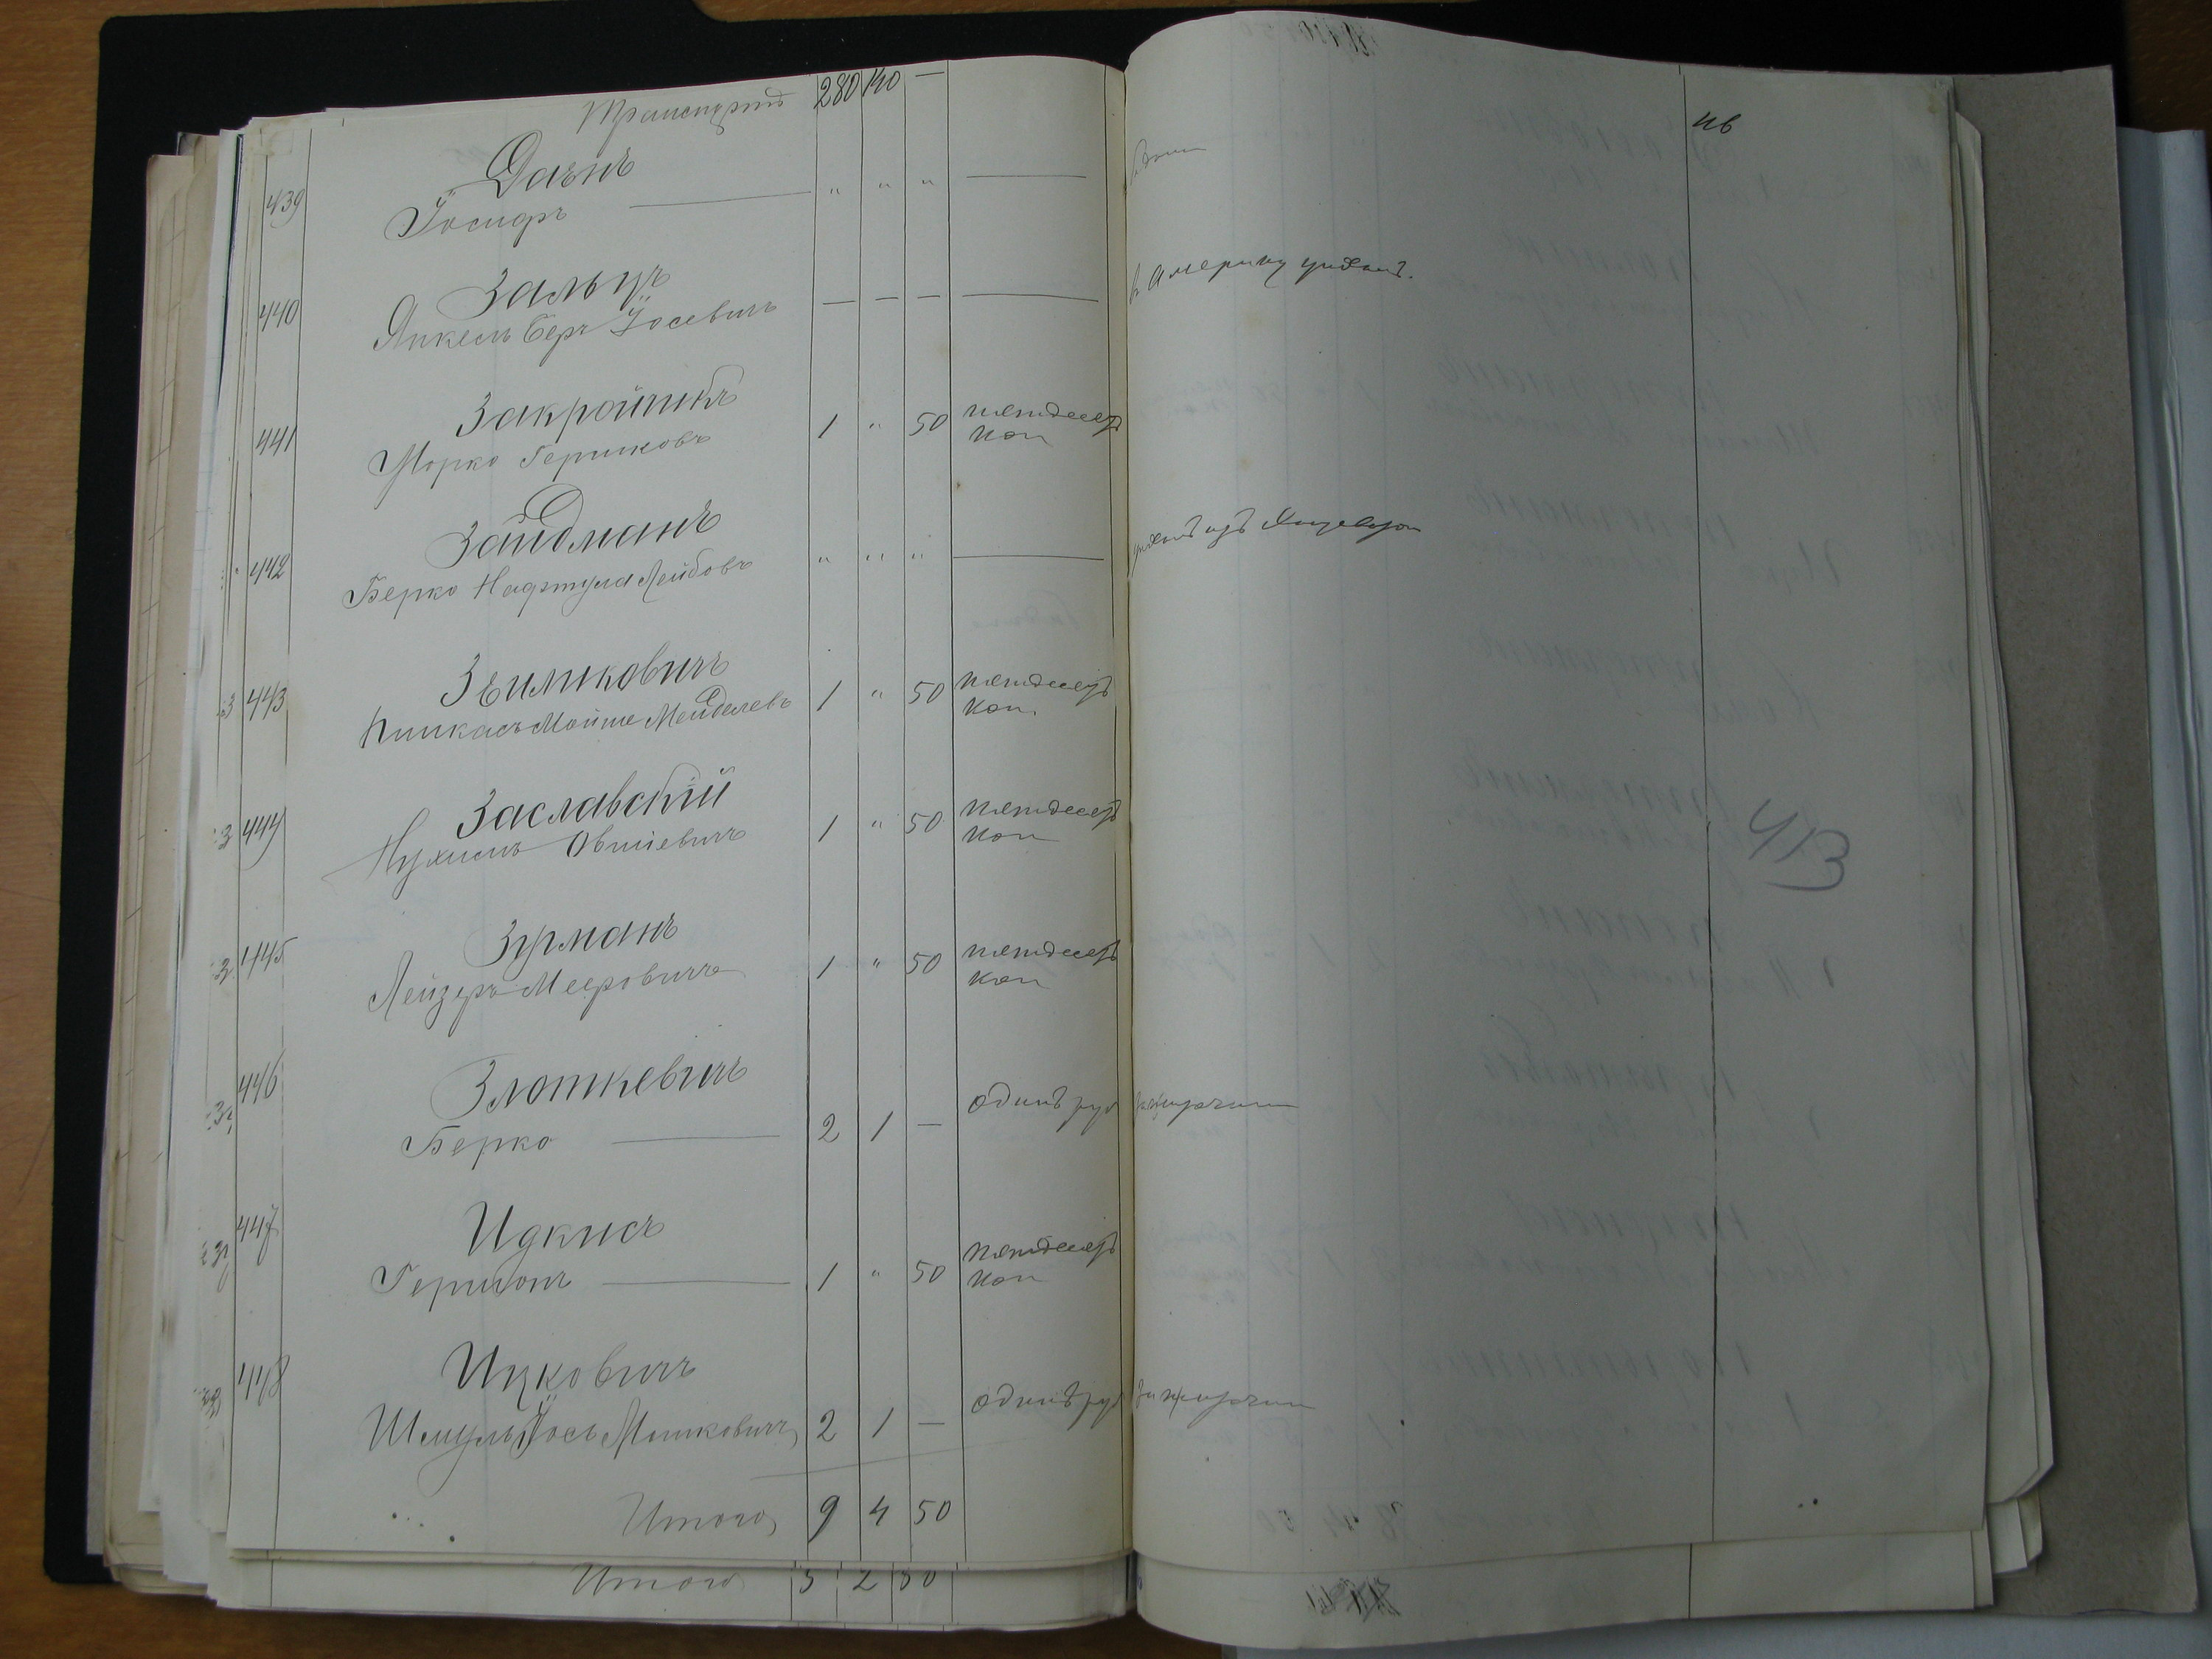 Транспортъ 280 140 —
46
439 Даенъ
Іосифъ — " " " —
440 Зальцъ
Янкель Беръ Іосевичъ — — — — въ Америку уѣхалъ.
441 Закройчикъ
Морко Гершковъ 1 " 50 пятдесятъ
коп
442 Зайдманъ
Берко Нафтула Лейбовъ " " " — уѣхалъ изъ
443 Зѣликовичъ
Пинкасъ Мойше Менделевъ 1 " 50 пятдесятъ
коп.
444 Заславскій
Нухимъ Овшіевичъ 1 " 50 пятдесятъ
коп
413
445 Зурманъ
Лейзеръ Мееровичъ 1 " 50 пятдесятъ
коп
446 Злоткевичъ
Берко — 2 1 — одинъ руб
447 Идкисъ
Гершонъ — 1 " 50 пятдесятъ
коп
448 Ицковичъ
Шмуль Іось Мошковичъ 2 1 — одинъ руб
Итого 9 4 50
Итого 5 2 50